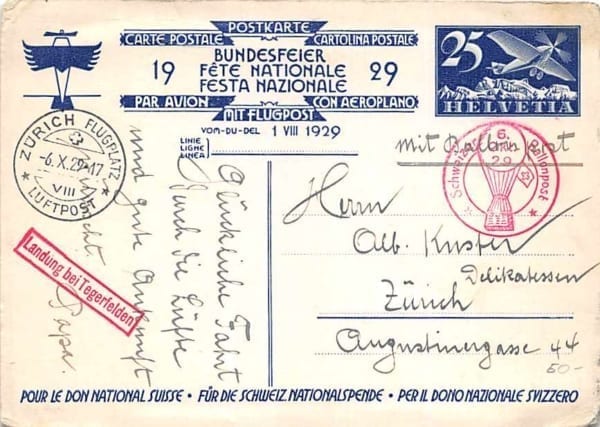 POSTKARTE
CARTE POSTALE CARTOLINA POSTALE
BUNDESFEIER
19 FÊTE NATIONALE 29
FESTA NAZIONALE
PAR AVION CON AEROPLANO
MIT FLUGPOST
VOM-DU-DEL 1 VIII 1929
LINIE
LIGNE
LINEA
25
HELVETIA
mit Ballonpost
ZÜRICH FLUGPLATZ
-6.X.29-17
VIII
LUFTPOST
Schweiz. Ballonpost
6.
29
Landung bei Tegerfelden
Glückliche Fahrt
durch die Lüfte
und gute Ankunft
Papa.
Herrn
Alb. Kuster
Delikatessen
Zürich
Augustinergasse 44
50.-
POUR LE DON NATIONAL SUISSE • FÜR DIE SCHWEIZ. NATIONALSPENDE • PER IL DONO NAZIONALE SVIZZERO